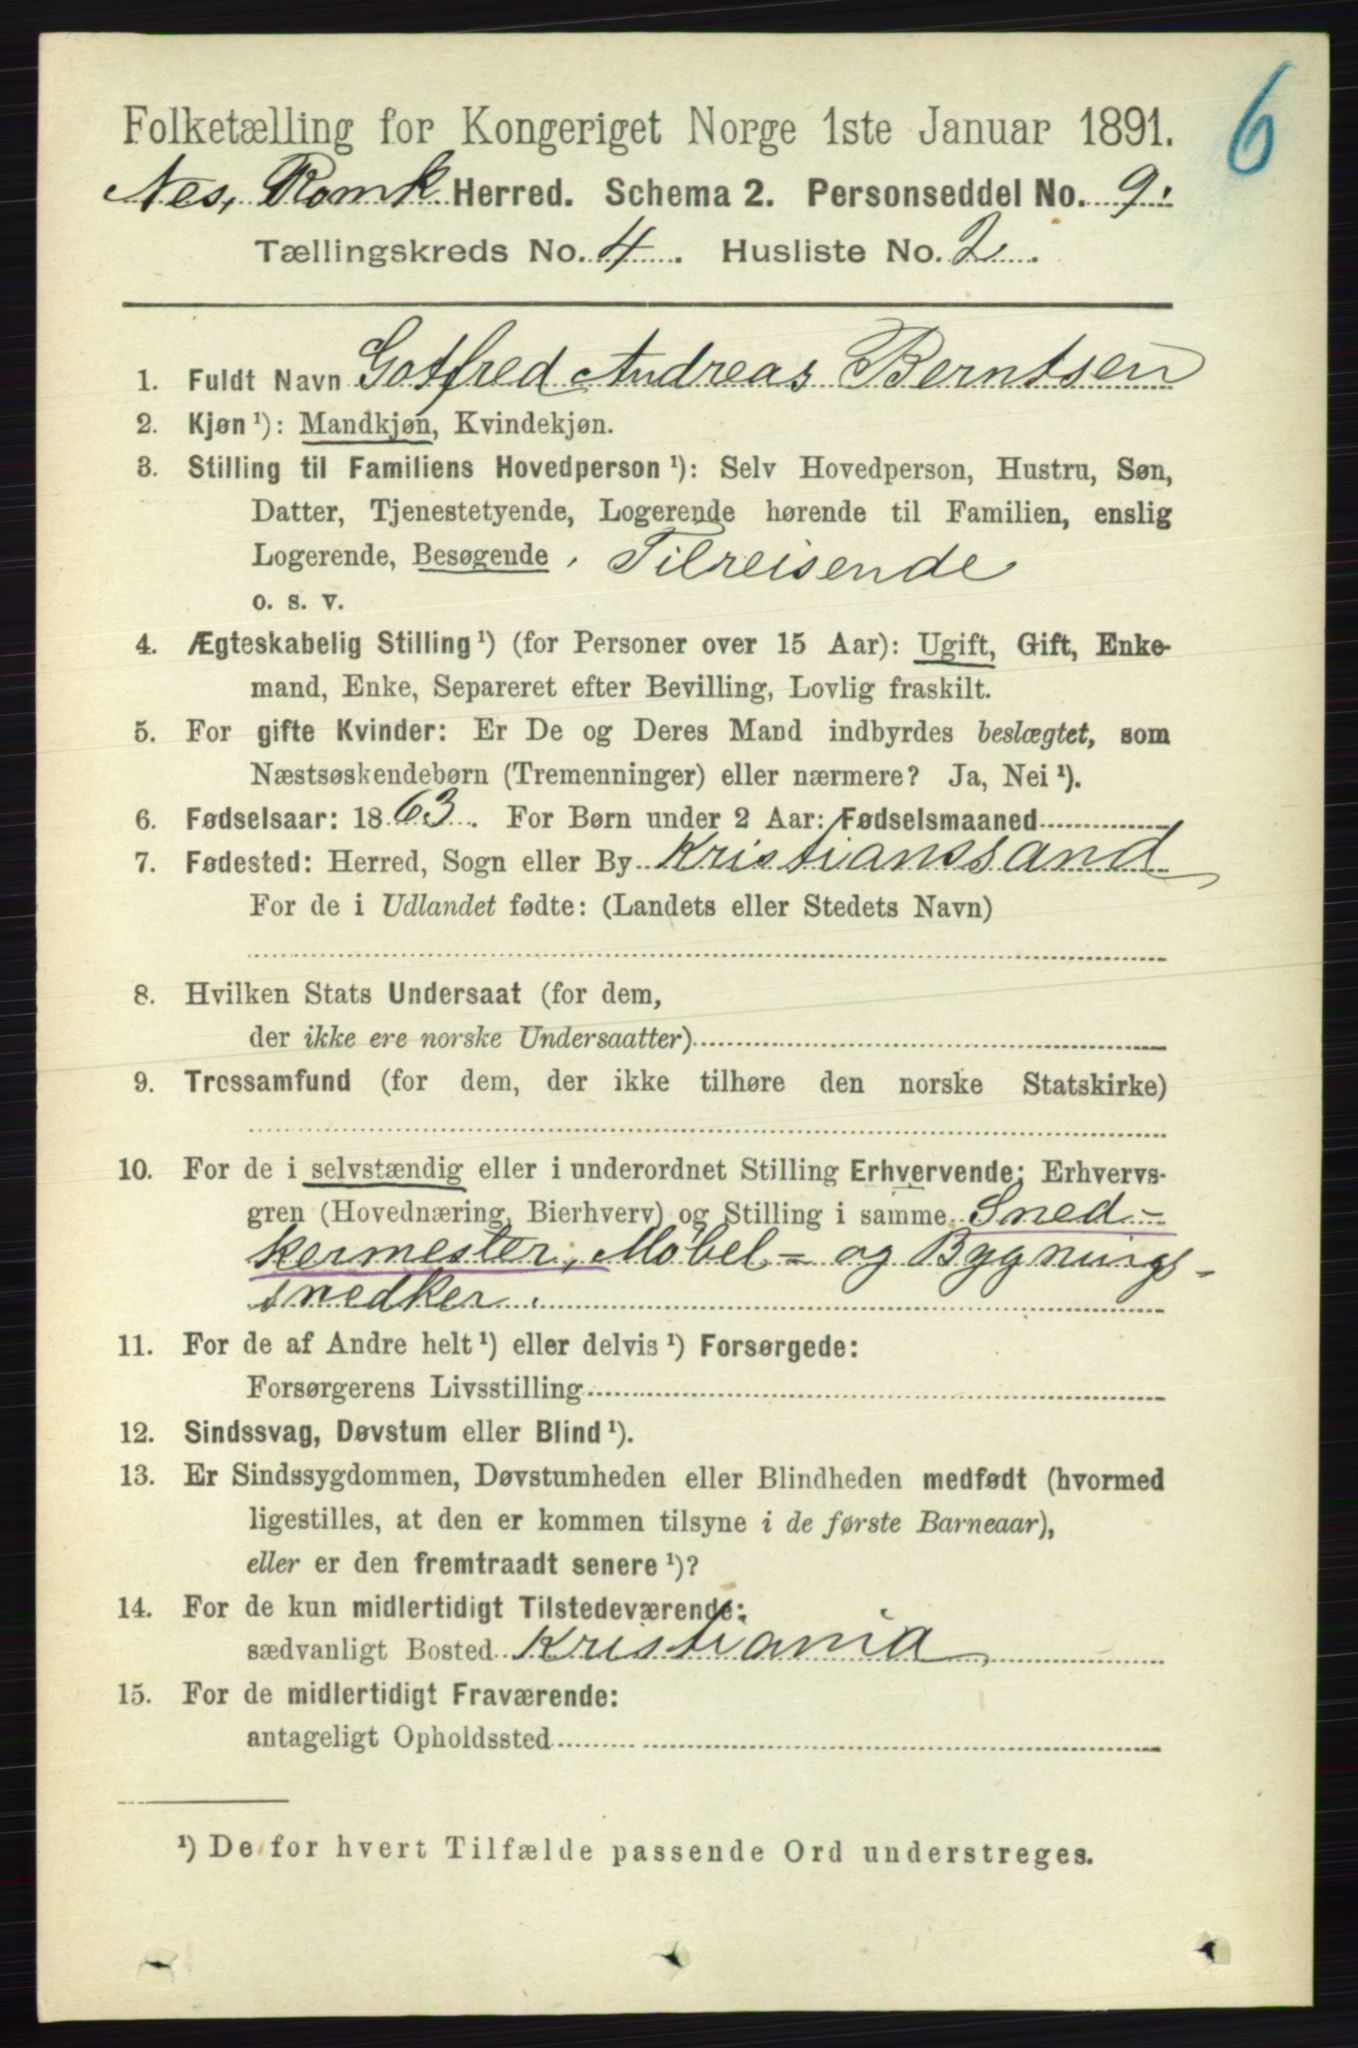 6
Folketælling for Kongeriget Norge 1ste Januar 1891.
Nes, Romk Herred. Schema 2. Personseddel No. 9.
Tællingskreds No. 4. Husliste No. 2.
1. Fuldt Navn Gotfred Andreas Berntsen
2. Kjøn ¹): Mandkjøn, Kvindekjøn.
3. Stilling til Familiens Hovedperson ¹): Selv Hovedperson, Hustru, Søn,
Datter, Tjenestetyende, Logerende hørende til Familien, enslig
Logerende, Besøgende, Tilreisende
o. s. v.
4. Ægteskabelig Stilling ¹) (for Personer over 15 Aar): Ugift, Gift, Enke-
mand, Enke, Separeret efter Bevilling, Lovlig fraskilt.
5. For gifte Kvinder: Er De og Deres Mand indbyrdes beslægtet, som
Næstsøskendebørn (Tremenninger) eller nærmere? Ja, Nei ¹).
6. Fødselsaar: 1863. For Børn under 2 Aar: Fødselsmaaned
7. Fødested: Herred, Sogn eller By Kristianssand
For de i Udlandet fødte: (Landets eller Stedets Navn)
8. Hvilken Stats Undersaat (for dem,
der ikke ere norske Undersaatter)
9. Trossamfund (for dem, der ikke tilhøre den norske Statskirke)
10. For de i selvstændig eller i underordnet Stilling Erhvervende: Erhvervs-
gren (Hovednæring, Bierhverv) og Stilling i samme Sned-
kermester, Møbel- og Bygnings-
snedker.
11. For de af Andre helt ¹) eller delvis ¹) Forsørgede:
Forsørgerens Livsstilling
12. Sindssvag, Døvstum eller Blind ¹).
13. Er Sindssygdommen, Døvstumheden eller Blindheden medfødt (hvormed
ligestilles, at den er kommen tilsyne i de første Barneaar),
eller er den fremtraadt senere ¹)?
14. For de kun midlertidigt Tilstedeværende:
sædvanligt Bosted Kristiania
15. For de midlertidigt Fraværende:
antageligt Opholdssted
¹) De for hvert Tilfælde passende Ord understreges.